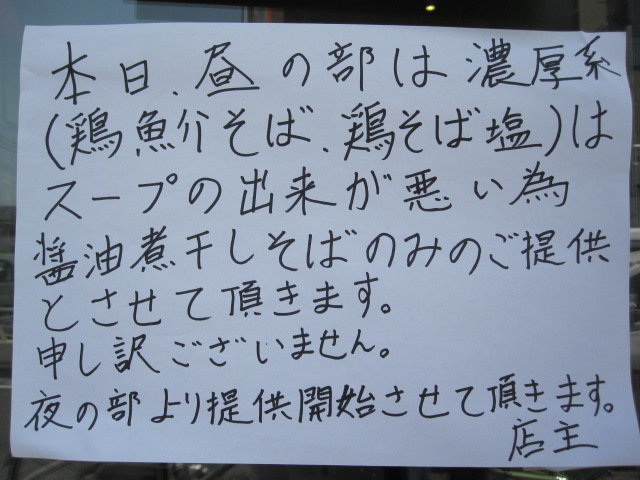 本日、昼の部は濃厚系
(鶏魚介そば、鶏そば塩)は
スープの出来が悪い為
醤油煮干しそばのみのご提供
とさせて頂きます。
申し訳ございません。
夜の部より提供開始させて頂きます。
店主